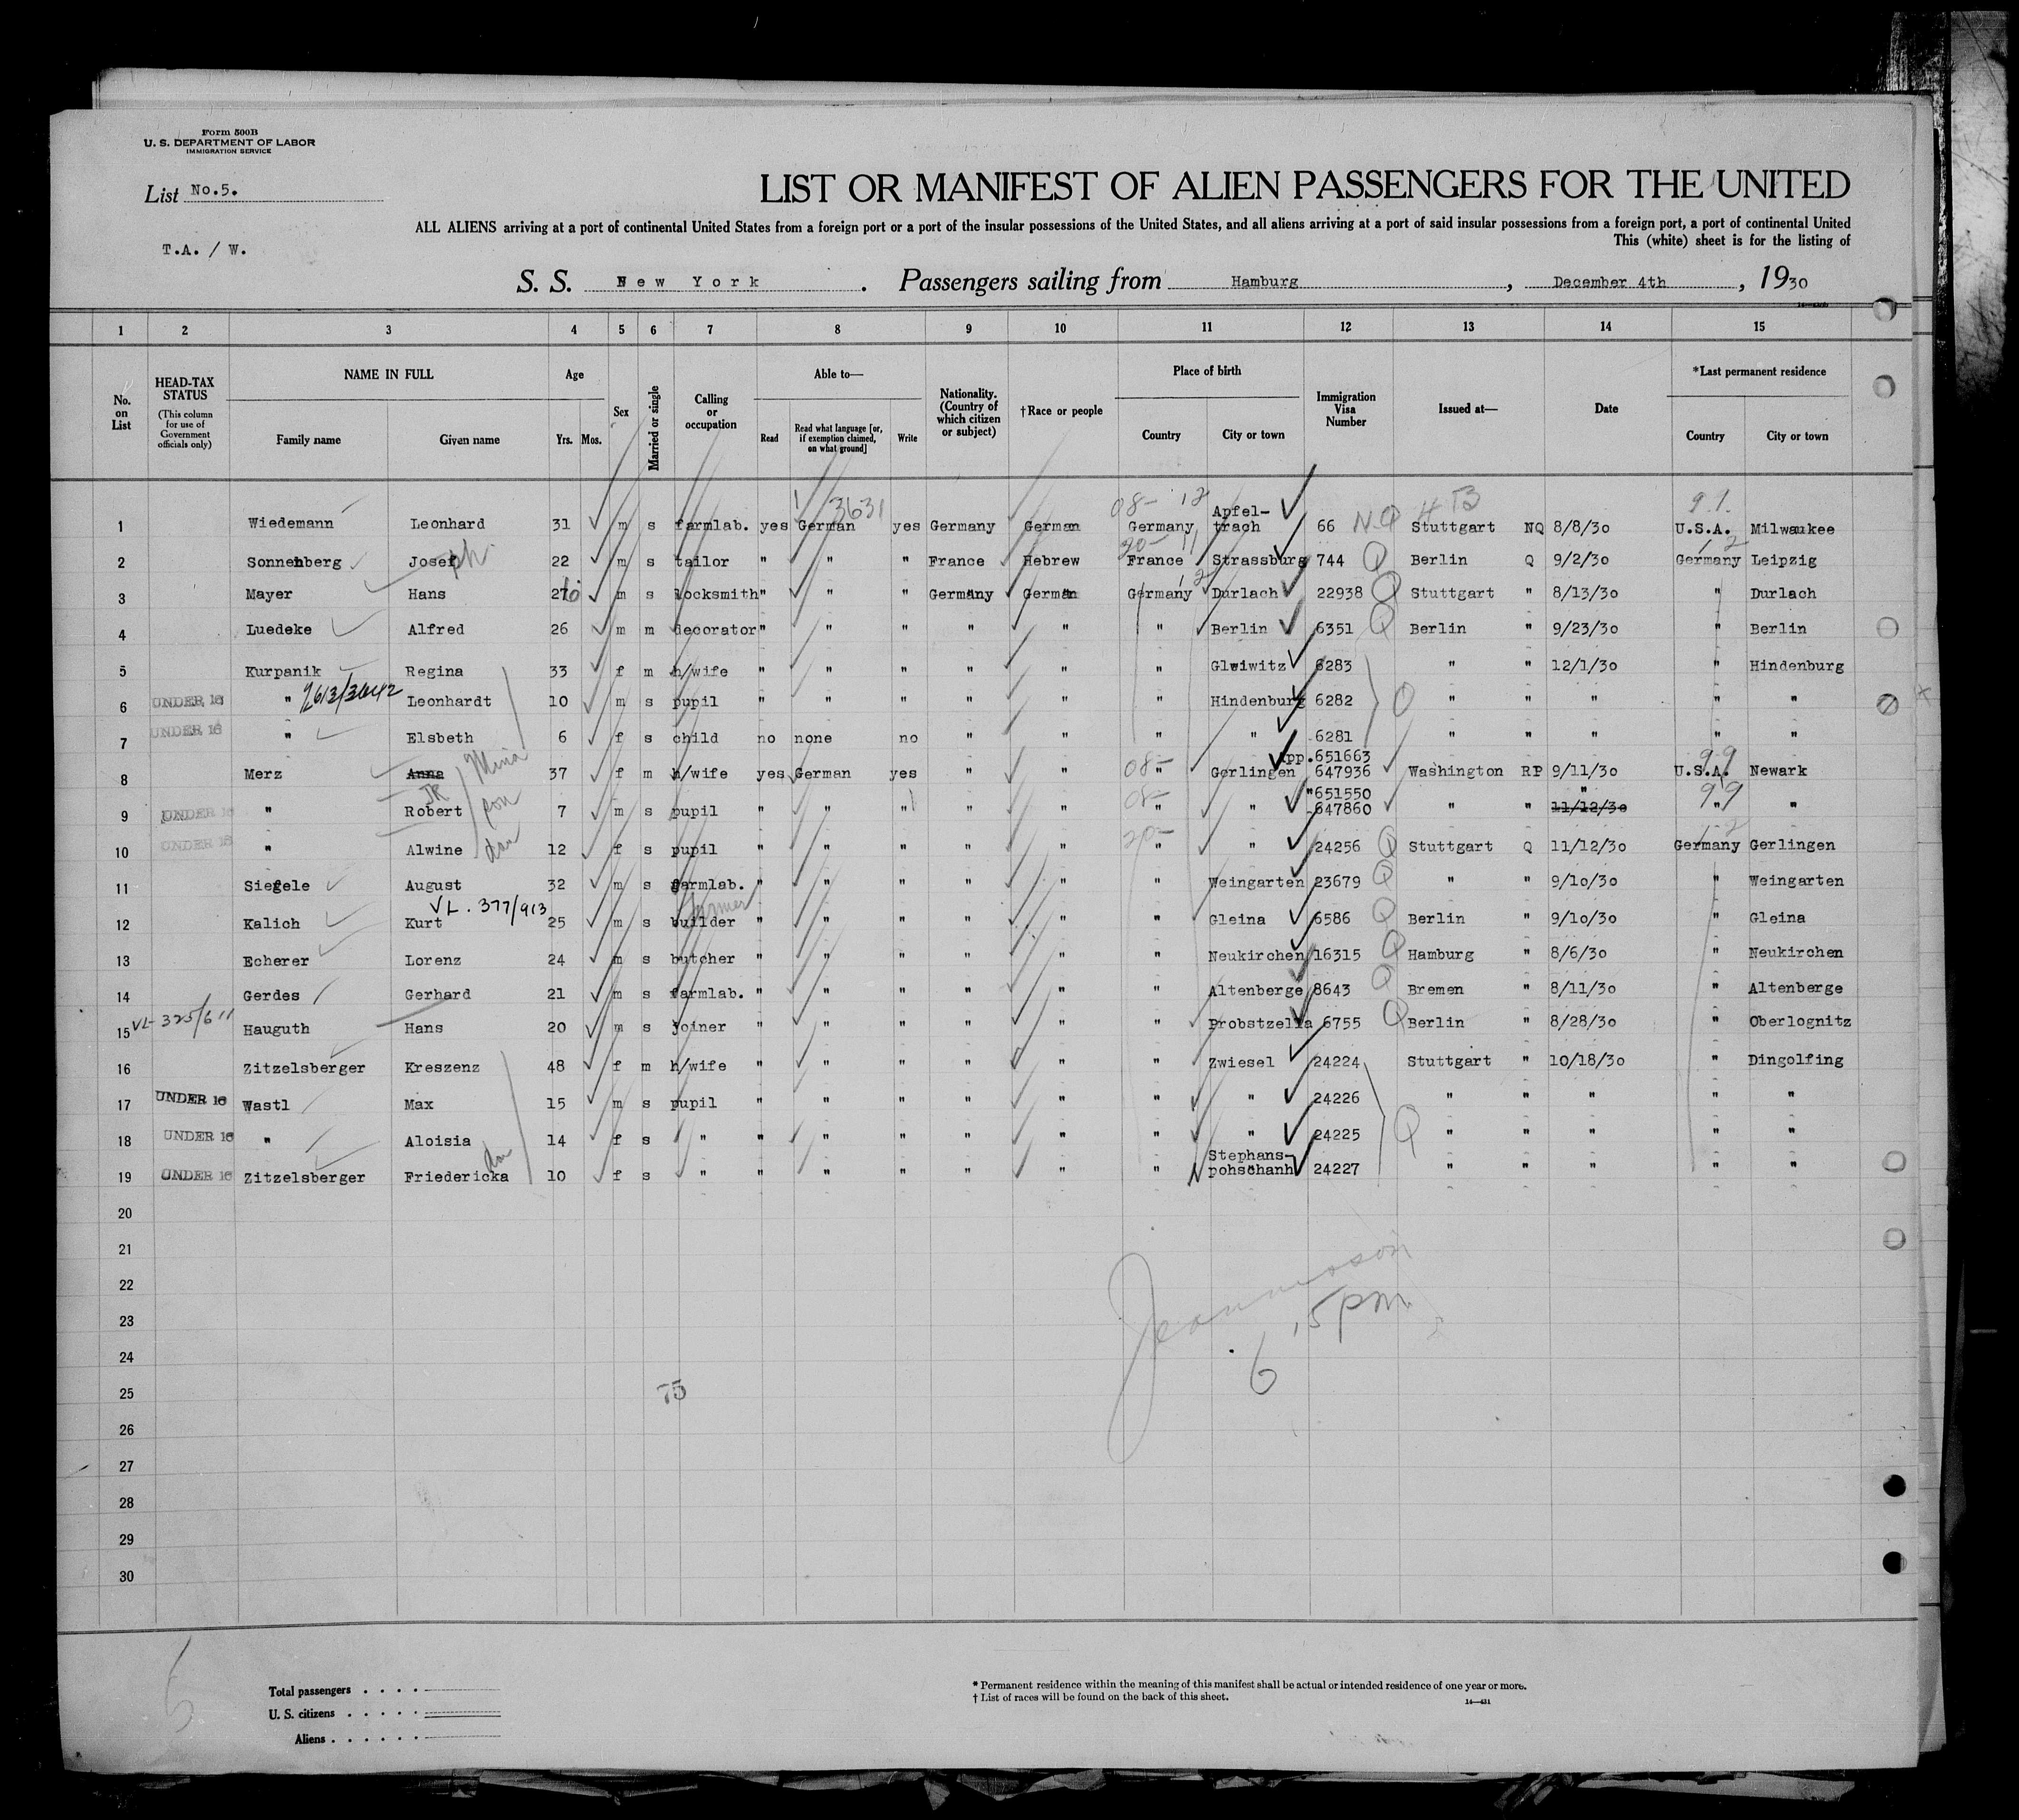 Form 500B
U. S. DEPARTMENT OF LABOR
IMMIGRATION SERVICE
List No.5.
T.A. / W.
LIST OR MANIFEST OF ALIEN PASSENGERS FOR THE UNITED
ALL ALIENS arriving at a port of continental United States from a foreign port or a port of the insular possessions of the United States, and all aliens arriving at a port of said insular possessions from a foreign port, a port of continental United
This (white) sheet is for the listing of
S. S. New York . Passengers sailing from Hamburg , December 4th , 1930
1 2 3 4 5 6 7 8 9 10 11 12 13 14 15
No. on List
HEAD-TAX STATUS (This column for use of Government officials only)
NAME IN FULL Family name Given name
Age Yrs. Mos.
Sex
Married or single
Calling or occupation
Able to— Read Read what language [or, if exemption claimed, on what ground] Write
Nationality. (Country of which citizen or subject)
†Race or people
Place of birth Country City or town
Immigration Visa Number
Issued at—
Date
*Last permanent residence Country City or town
3631 08- 12 91.
1 Wiedemann Leonhard 31 m s farmlab. yes German yes Germany German Germany Apfel-trach 66 NQ Stuttgart NQ 8/8/30 U.S.A. Milwaukee
2 Sonnenberg Josef ph 22 m s tailor " " " France Hebrew France Strassburg 744 Q Berlin Q 9/2/30 Germany Leipzig
3 Mayer Hans 26 m s locksmith " " " Germany German Germany Durlach 22938 Q Stuttgart " 8/13/30 " Durlach
4 Luedeke Alfred 26 m m decorator " " " " " " Berlin 6351 Q Berlin " 9/23/30 " Berlin
5 Kurpanik Regina 33 f m h/wife " " " " " " Gleiwitz 6283 " " 12/1/30 " Hindenburg
6 UNDER 16 " Leonhardt 10 m s pupil " " " " " " Hindenburg 6282 Q " " " " "
7 UNDER 16 " Elsbeth 6 f s child no none no " " " " 6281 " " " " "
8 Merz Anna Mina 37 f m h/wife yes German yes " " 08- " Gerlingen App.651663 647936 Washington RP 9/11/30 U.S.A. 99 Newark
9 UNDER 16 " Robert JR son 7 m s pupil " " " " " 08- " " "651550 647860 " " " 11/12/30 99 " "
10 UNDER 16 " Alwine dau 12 f s pupil " " " " " 20- " " 24256 Q Stuttgart Q 11/12/30 Germany Gerlingen
11 Siegele August 32 m s farmlab. " " " " " " Weingarten 23679 Q " " 9/10/30 " Weingarten
VL. 377/913 farmer
12 Kalich Kurt 25 m s builder " " " " " " Gleina 6586 Q Berlin " 9/10/30 " Gleina
13 Echerer Lorenz 24 m s butcher " " " " " " Neukirchen 16315 Q Hamburg " 8/6/30 " Neukirchen
14 Gerdes Gerhard 21 m s farmlab. " " " " " " Altenberge 8643 Q Bremen " 8/11/30 " Altenberge
15 VL-325/611 Hauguth Hans 20 m s joiner " " " " " " Probstzella 6755 Q Berlin " 8/28/30 " Oberlognitz
16 Zitzelsberger Kreszenz 48 f m h/wife " " " " " " Zwiesel 24224 Stuttgart " 10/18/30 " Dingolfing
17 UNDER 16 Wastl Max 15 m s pupil " " " " " " " 24226 " " " " "
18 UNDER 16 " Aloisia 14 f s " " " " " " " " 24225 Q " " " " "
19 UNDER 16 Zitzelsberger Friedericka dau 10 f s " " " " " " " Stephans-pohschanh 24227 " " " " "
20
21
22
23
24
25
26
27
28
29
30
5 pm
6
75
Total passengers . . . .
U. S. citizens . . . . .
Aliens . . . . . .
* Permanent residence within the meaning of this manifest shall be actual or intended residence of one year or more.
† List of races will be found on the back of this sheet.
14—431